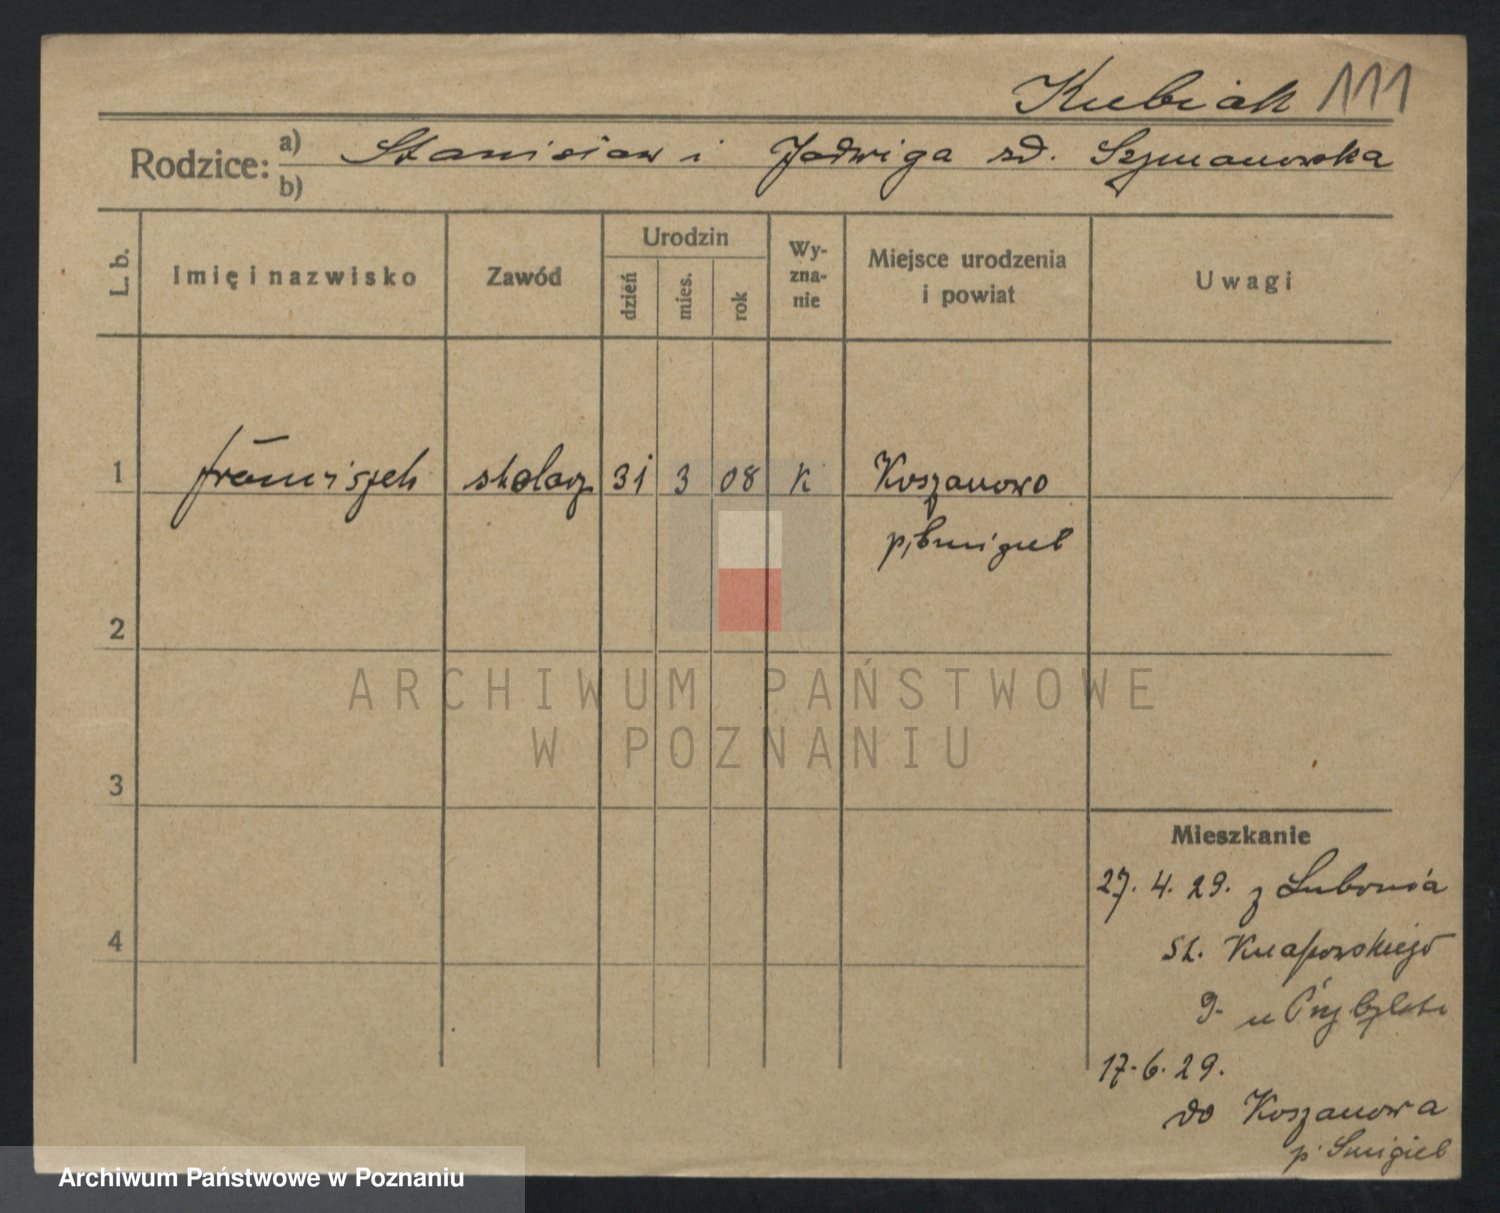 Kubiak 111
Rodzice: a) Stanisław i Jadwiga zd. Szymanowska
b)
L. b. Imię i nazwisko Zawód Urodzin dzień mies. rok Wyznanie Miejsce urodzenia i powiat Uwagi
1 Franciszek stolarz 31 3 08 K Koszanowo
p. Śmigiel
2
ARCHIWUM PAŃSTWOWE
W POZNANIU
3
Mieszkanie
27. 4. 29. z Lubonia
4
St. Knapowskiego
9. u
17. 6. 29.
do Koszanowa
p. Śmigiel
Archiwum Państwowe w Poznaniu